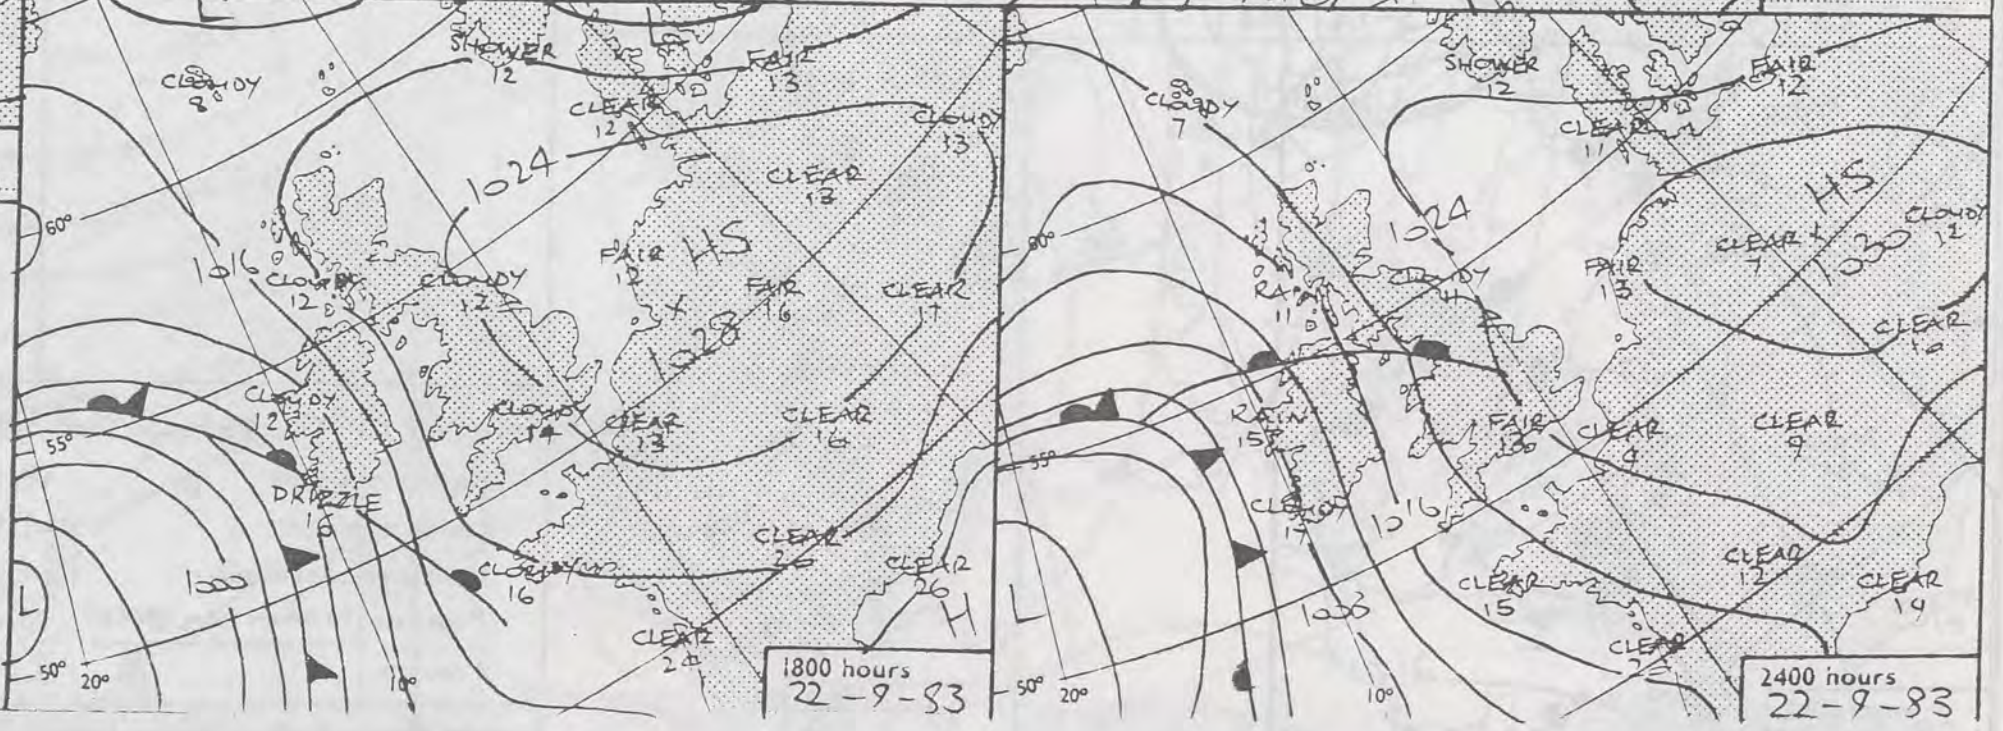 L
L
SHOWER
12
FAIR
13
CLOUDY
8
CLEAR
12
CLOUDY
13
1024
CLEAR
13
60°
1016
CLOUDY
12
CLOUDY
12
FAIR
12
HS
FAIR
16
X
1028
CLEAR
17
CLOUDY
12
CLOUDY
14
CLEAR
13
CLEAR
16
55°
DRIZZLE
16
CLEAR
20
1000
L
CLOUDY
16
CLEAR
26
H
CLEAR
50°
20°
10°
1800 hours
22-9-83
SHOWER
12
FAIR
12
CLOUDY
7
CLEAR
11
HS
1024
CLEAR
7
1030
CLOUDY
12
60°
RAIN
11
CLOUDY
11
FAIR
13
CLEAR
10
RAIN
15
FAIR
CLEAR
9
CLEAR
9
55°
CLOUDY
17
1016
CLEAR
12
CLEAR
14
L
CLEAR
15
CLEAR
50°
20°
10°
2400 hours
22-9-83